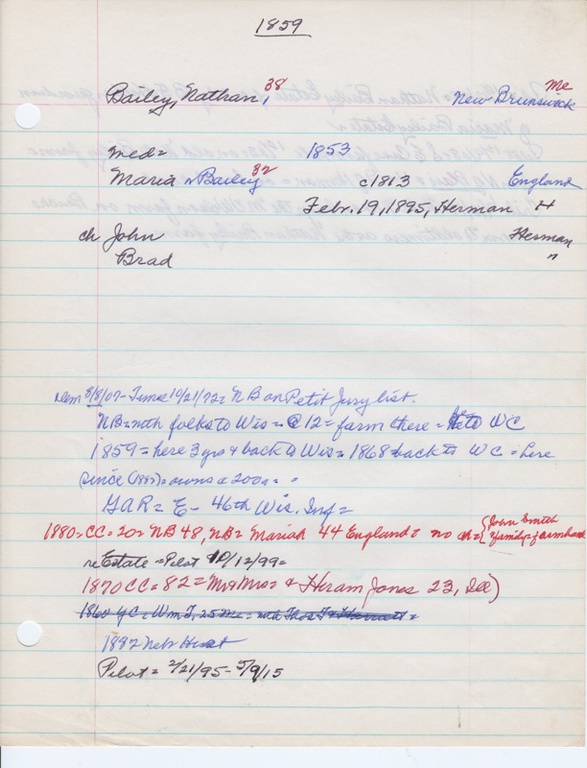 1859
Bailey, Nathan, 38 New Brunswick Me
Med= 1853
Maria n Bailey 32 c1813 England
Febr. 19, 1895, Herman H
ch John Herman
Brad "
Dem 8/8/07 - Times 10/21/72 = NB on Petit Jury list.
NB = with folks to Wis = @ 12 = farm there = to WC
1859 = here 3 yrs & back to Wis = 1868 back to WC = here
since (1882) = owns a 200a = =
GAR = E - 46th Wis. Inf =
1880 = CC = 20 = NB 48, NB = Mariah 44 England = no ch = {John Smith
& family = farmhand
re Estate = Pilot 10/12/99 =
1870 CC = 82 = Mr & Mrs = & Hiram Jones 23, Ill)
1860 YC = Wm T, 25 Me = with Thos T & Harriett =
1882 Neb Hist
Pilot = 2/21/95 - 5/9/15